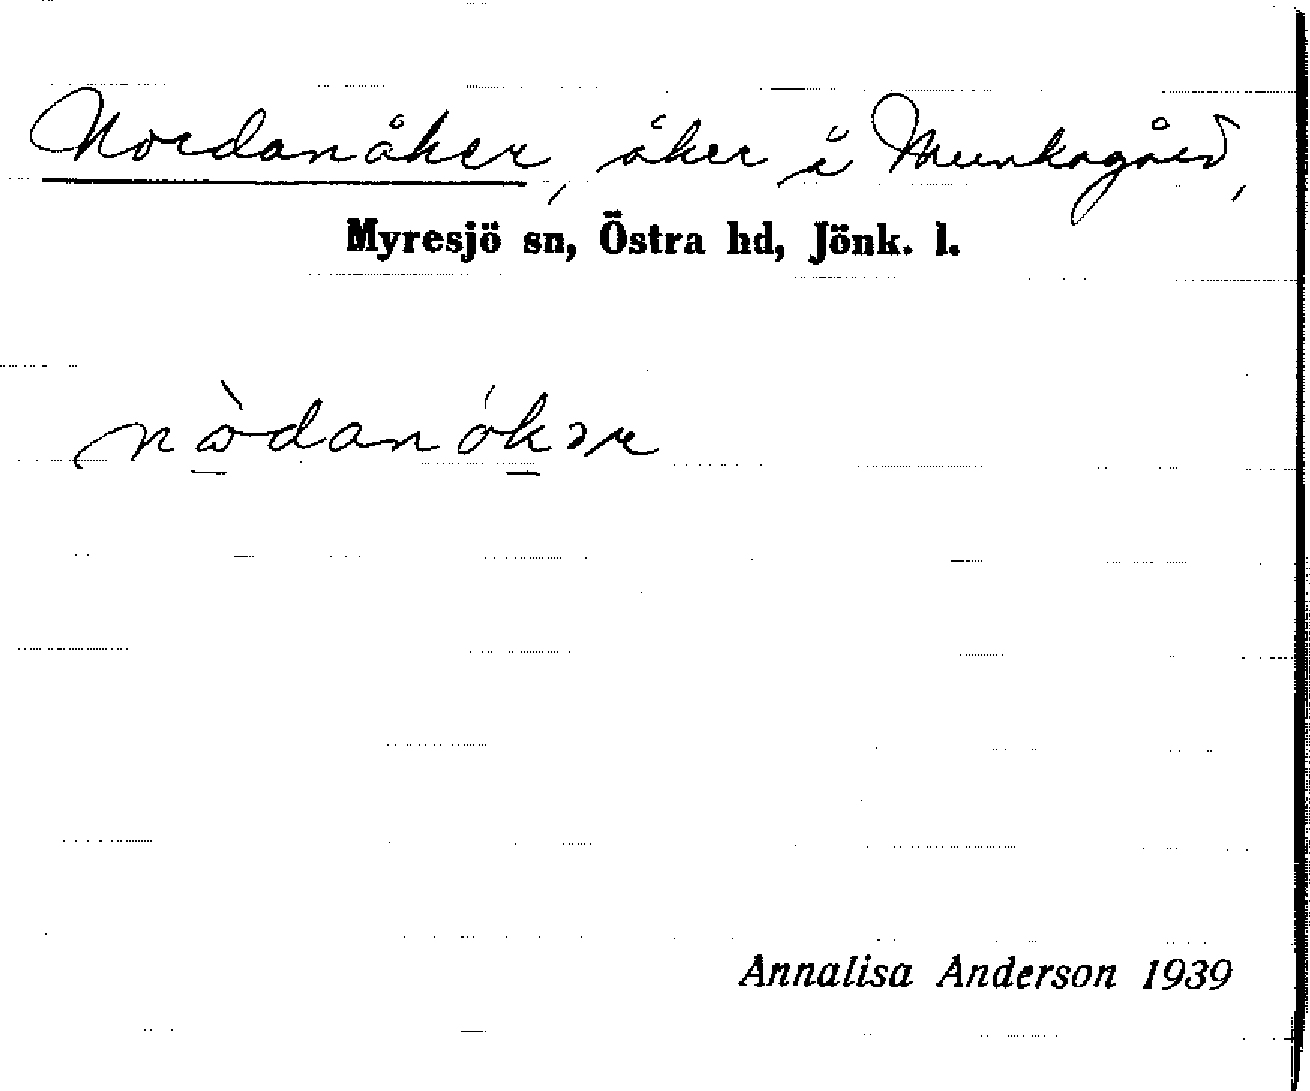 Nordanåker, åker i Munkagård,
Myresjö sn, Östra hd, Jönk. l.
nὼdanókər
Annalisa Anderson 1939